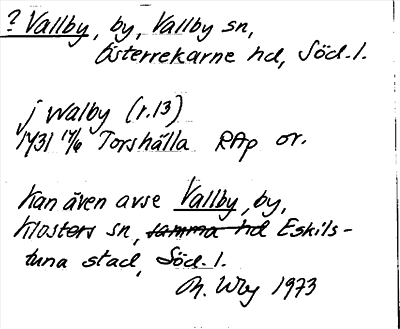 ? Vallby, by, Vallby sn,
Österrekarne hd, Söd. l.
j walby (r. 13)
1431 17/6 Torshälla RAp or.
Kan även avse Vallby, by,
Klosters sn, samma hd Eskils-
tuna stad, Söd. l.
1973